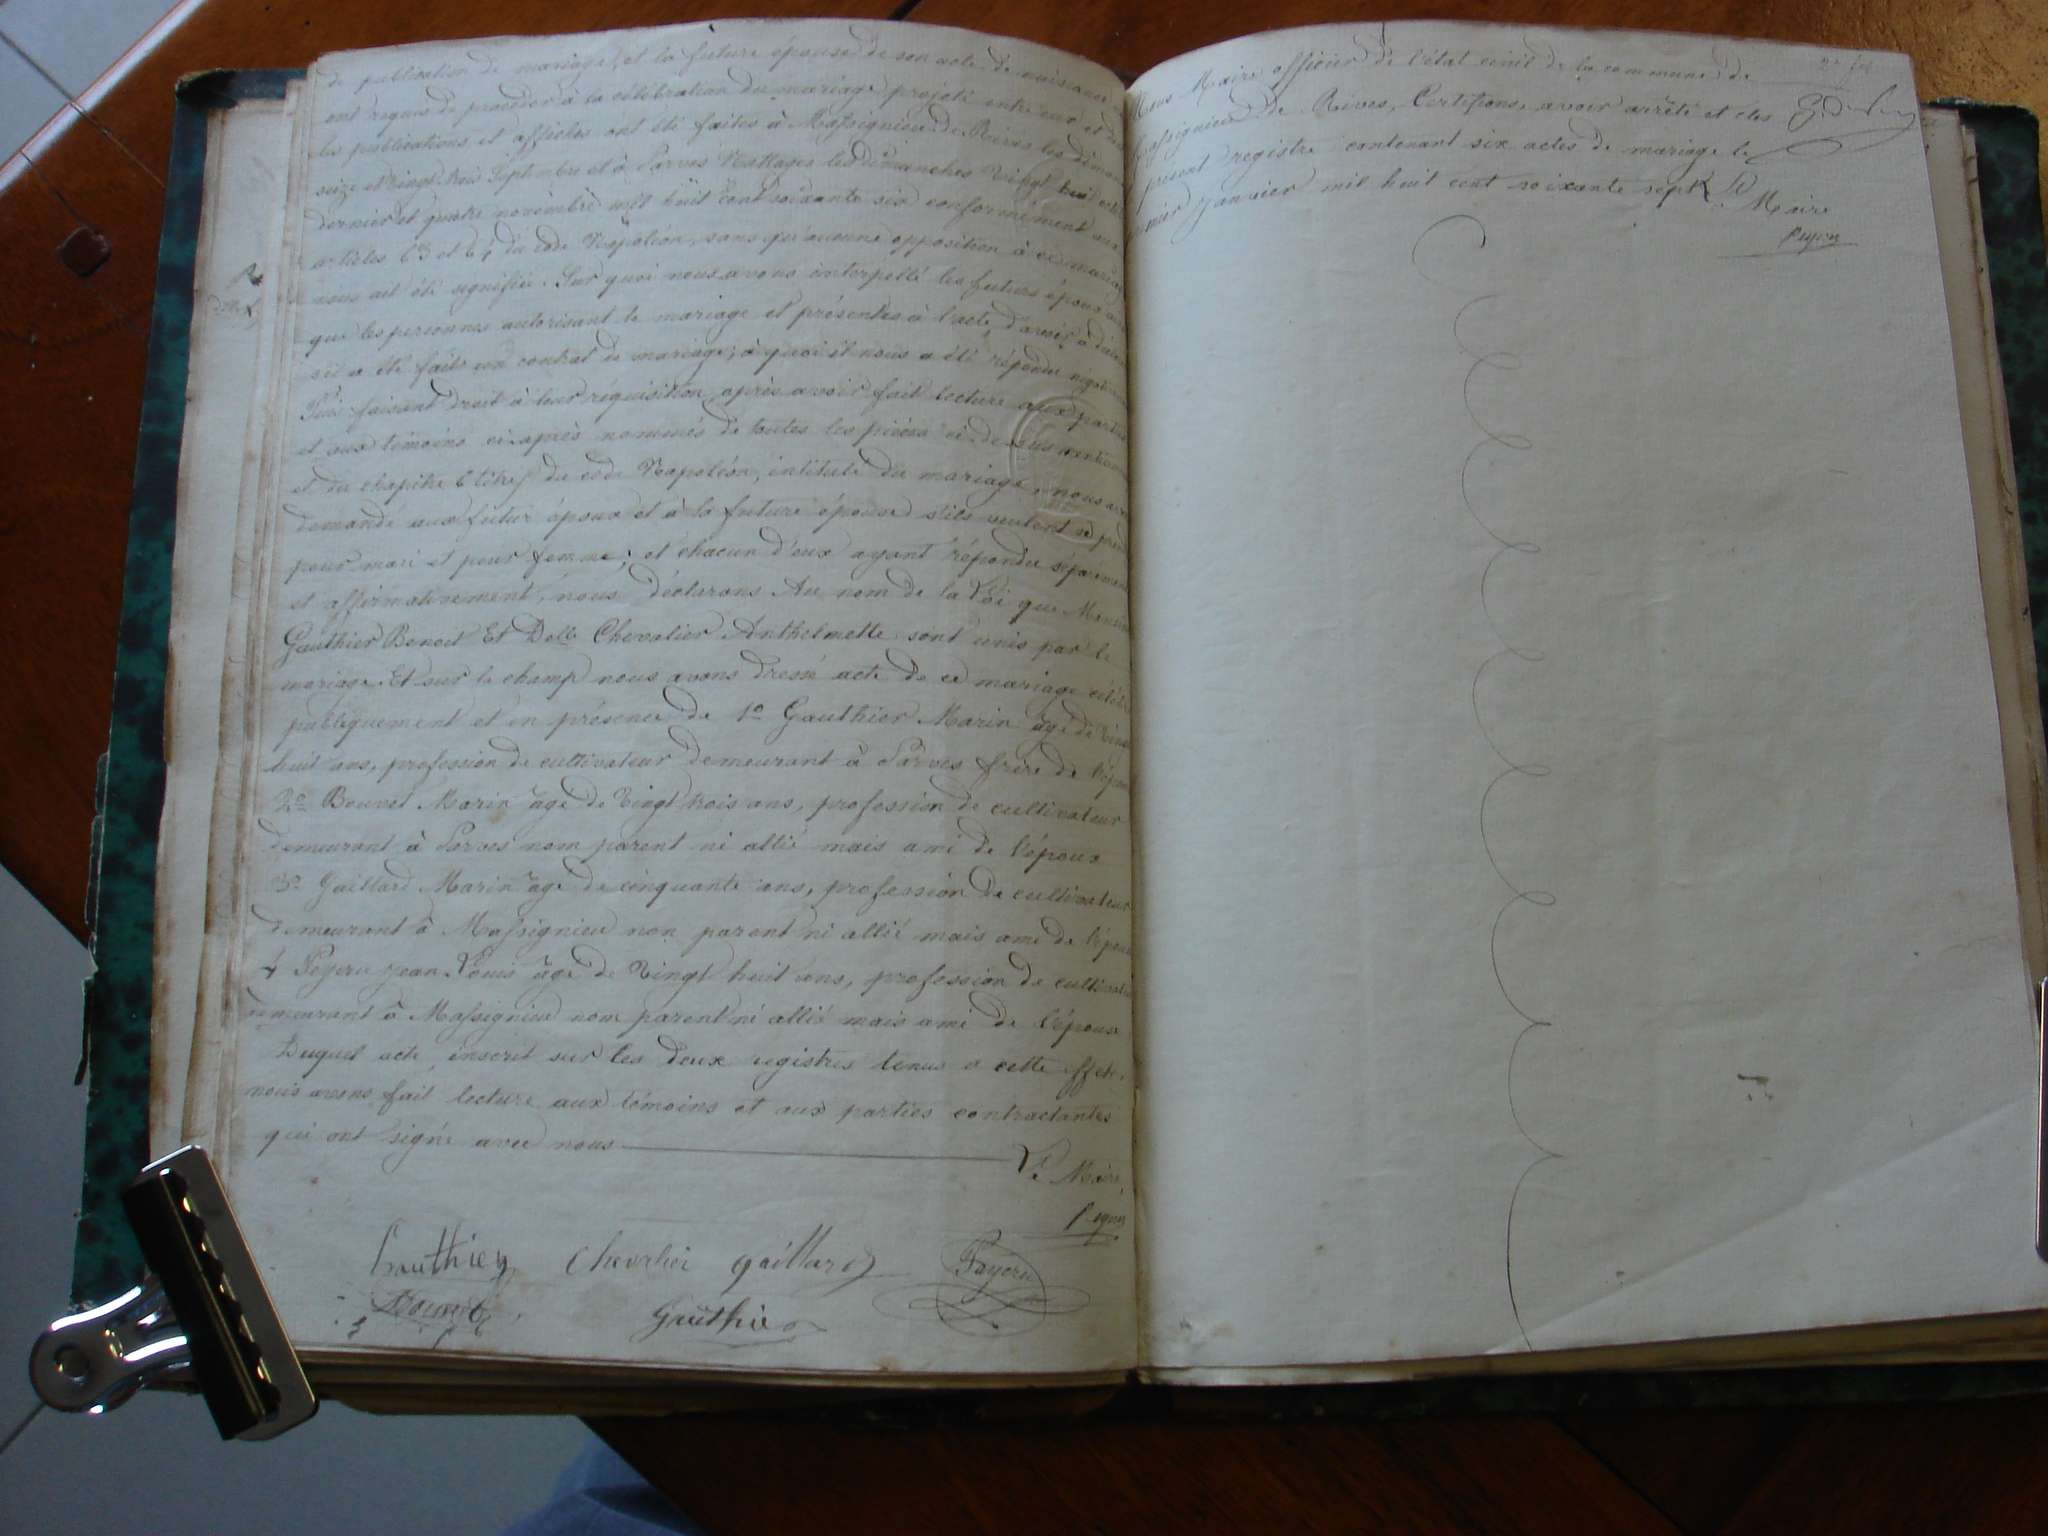 de publication de mariage, et la future épouse de son acte de naissance
ont requis de procéder à la célébration du mariage projeté entre eux et dont
les publications et affiches ont été faites à Massignieu de Rives les
seize et vingt trois Septembre et à Parves Nattages les dimanches vingt huit
dernier et quatre novembre mil huit cent soixante six conformément aux
articles 63 et 64 du code Napoléon, sans qu'aucune opposition à ce mariage
nous ait été signifiée. Sur quoi nous avons interpellé les futurs époux
que les personnes autorisant le mariage et présentes à l'acte, d'avoir à
s'il a été fait un contrat de mariage; à quoi il nous a été répondu
Puis faisant droit à leur réquisition, après avoir fait lecture aux parties
et aux témoins ci-après nommés de toutes les pièces ci-dessus
et du chapitre 6 titre 5 du code Napoléon, intitulé du mariage, nous
demandé aux futur époux et à la future épouse s'ils veulent se
pour mari et pour femme; et chacun d'eux ayant répondu
et affirmativement, nous déclarons Au nom de la Loi que
Gauthier Benoit Et Delle Chevalier Anthelmette sont unis par le
mariage. Et sur le champ nous avons dressé acte de ce mariage
publiquement et en présence de 1o Gauthier Marin âgé de
huit ans, profession de cultivateur demeurant à Parves frère de
2o Bouvet Marin âgé de vingt trois ans, profession de cultivateur
demeurant à Parves nom parent ni allié mais ami de l'époux
3o Gaillard Marin âgé de cinquante ans, profession de cultivateur
demeurant à Massignieu non parent ni allié mais ami de
4 Payeru Jean Louis âgé de vingt huit ans, profession de
demeurant à Massignieu nom parent ni allié mais ami de l'époux
Duquel acte, inscrit sur les deux registres tenus a cette effet,
nous avons fait lecture aux témoins et aux parties contractantes
qui ont signé avec nous
Le Maire,
Gauthier Chevalier Gaillard Payeru
Gauthier
Nous Maire officier de l'état civil de la commune de
Massignieu de Rives, Certifions avoir arrêté et clos
présent registre contenant six actes de mariage le
janvier mil huit cent soixante sept Le
Maire